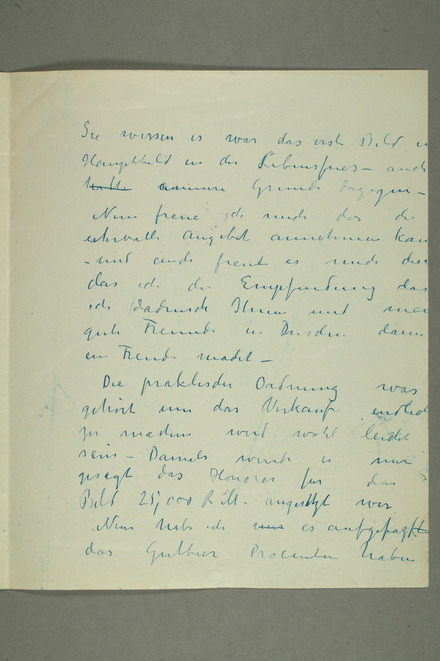 Sie wissen es war das erste Bild in
Hauptbild in der Lebensfries – auch
hatte Grunde dagegen –
Nun freue ich mich das
ehrenvolle Angebot annehmen kan
– und auch freut es mich
das ich die Empfindung das
ich dadurch Ihnen und mein
gute Freunde in Dresden damit
ein Freude machet –
Die praktische Ordnung was
gehört um das Verkauf endlich
zu machen wird wohl leicht
sein – Damals wurde es mir
gesagt das Honorar für das
Bild 25,000 R.M. angesetzt war
Nun hab ich nur es aufgefasst
das Gutbier Procenten haben